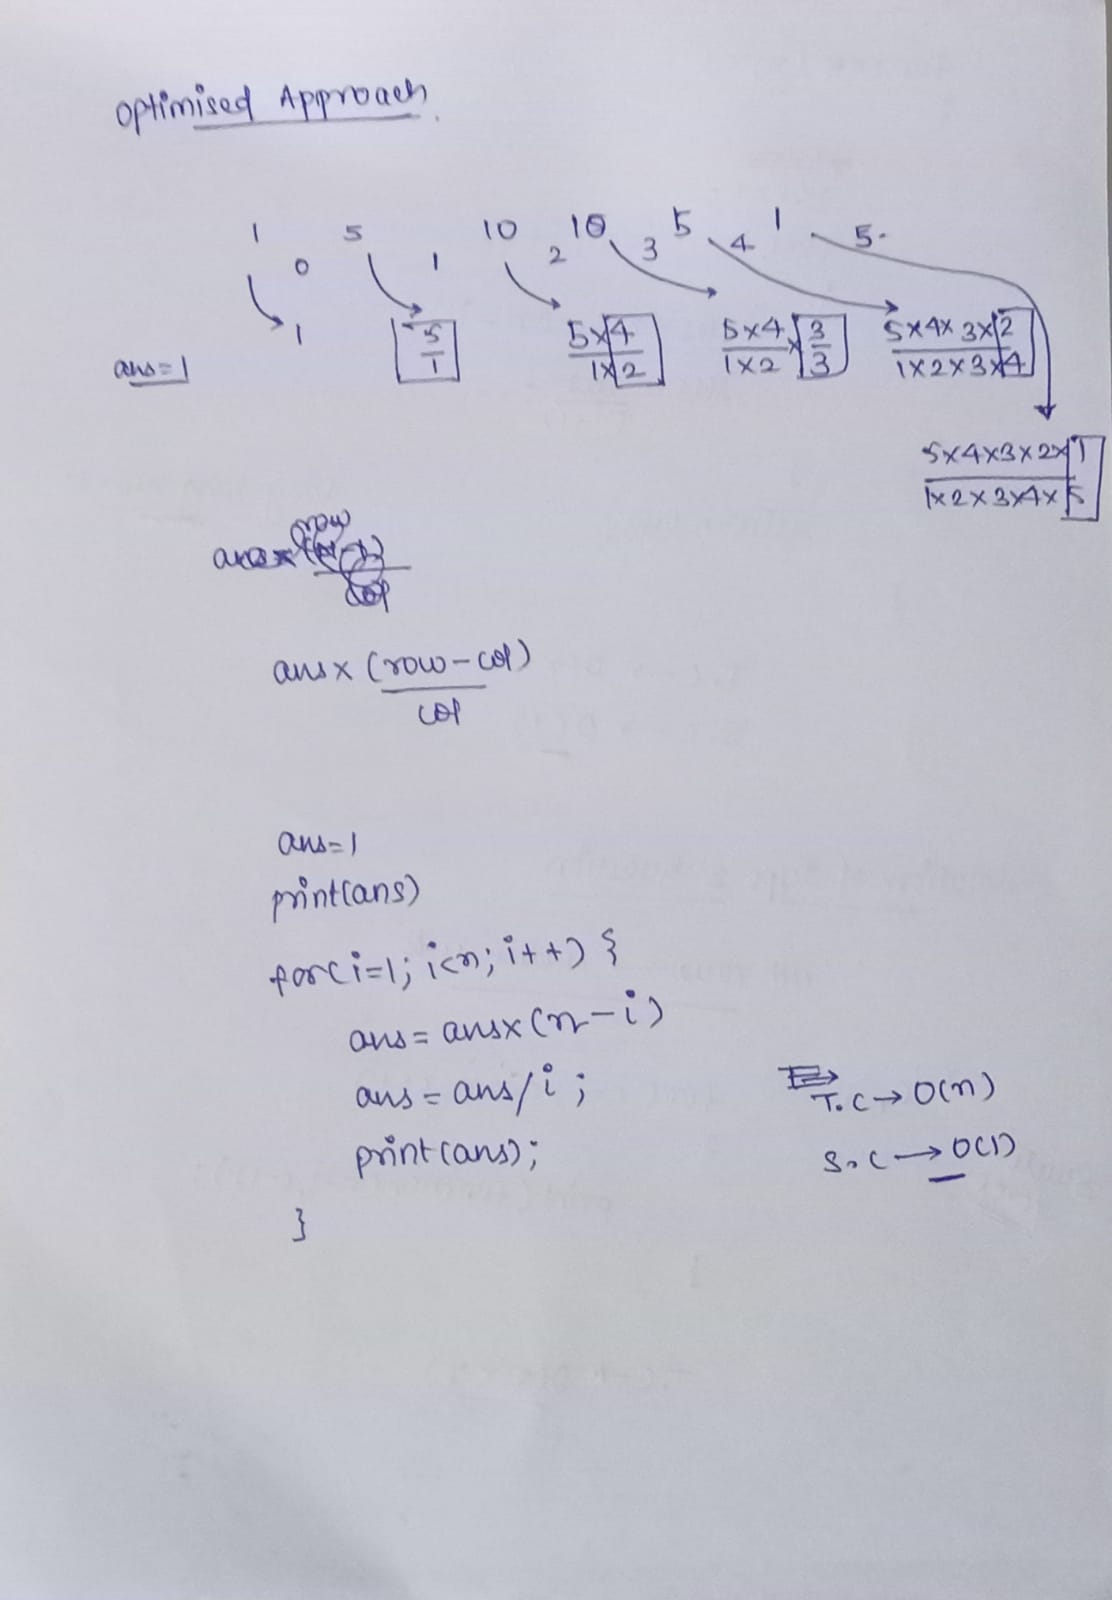 optimised Approach.
1 5 10 10 5 1
0 1 2 3 4 5.
ans=1 1 5/1 5x4/1x2 5x4/1x2 x 3/3 5x4x3x2/1x2x3x4
5x4x3x2x1/1x2x3x4x5
ans x (row-col)/col
ans=1
print(ans)
for(i=1; i<n; i++) {
ans = ansx(n-i)
ans = ans/i;
print(ans);
}
T.C → O(n)
S.C → O(1)